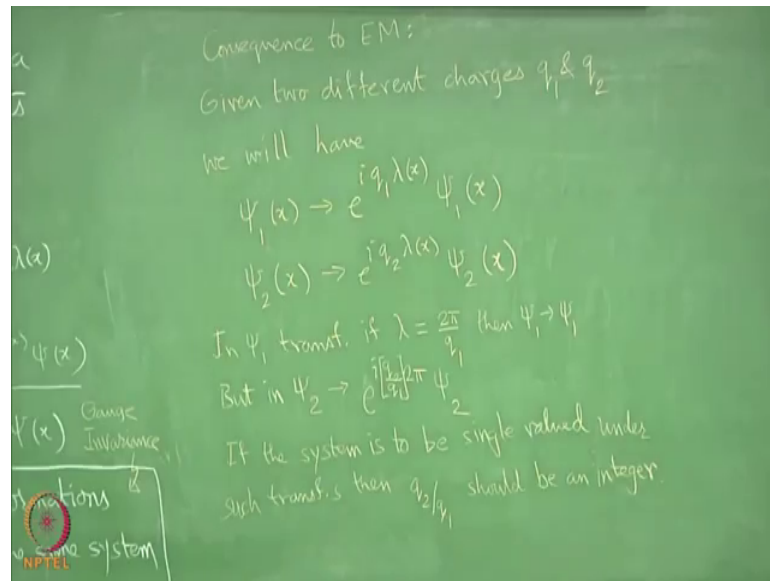 a
s̄
λ(x)
ψ(x)
Ψ(x) Gauge
Invariance
mations
same system
Consequence to EM:
Given two different charges q₁ & q₂
we will have
Ψ₁(x) → e^{iq₁λ(x)} Ψ₁(x)
Ψ₂(x) → e^{iq₂λ(x)} Ψ₂(x)
In Ψ₁ transf. if λ = 2π/q₁ then Ψ₁ → Ψ₁
But in Ψ₂ → e^{i[q₂/q₁]2π} Ψ₂
If the system is to be single valued under
such transf.s then q₂/q₁ should be an integer.
NPTEL